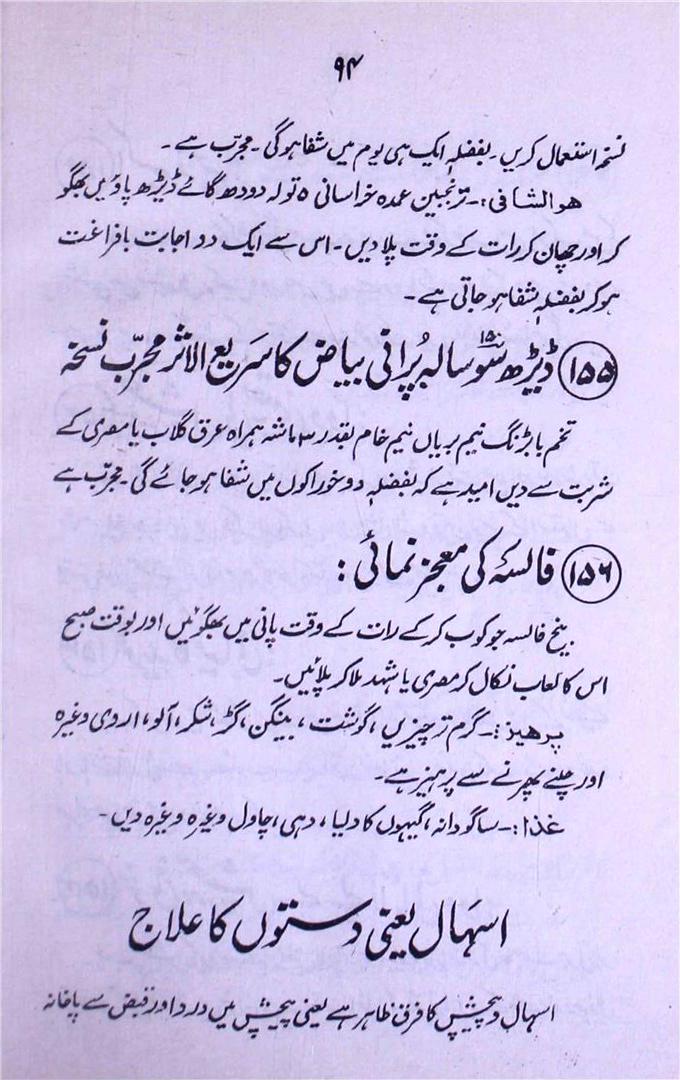 ۹۴
نسخہ استعمال کریں۔ بفضلہٖ ایک ہی یوم میں شفا ہوگی۔ مجرّب ہے۔
ھوالشافی:۔ ترنجبین عمدہ خراسانی ۵ تولہ دودھ گائے ڈیڑھ پاؤ میں بھگو
کر اور چھان کر رات کے وقت پلا دیں۔ اس سے ایک دو اجابت بافراغت
ہو کر بفضلہٖ شفا ہو جاتی ہے۔
۱۵۵ ڈیڑھ سو ۱۵۰ سالہ پُرانی بیاض کا سریع الاثر مجرّب نسخہ
تخم بابڑنگ نیم بریاں نیم خام بقدر ۳ ماشہ ہمراہ عرق گلاب یا مصری کے
شربت سے دیں امید ہے کہ بفضلہٖ دو خوراکوں میں شفا ہو جائے گی۔ مجرّب ہے
۱۵۶ فالسہ کی معجز نمائی:
بیخ فالسہ جو کوب کر کے رات کے وقت پانی میں بھگوئیں اور بوقت صبح
اس کا لعاب نکال کر مصری یا شہد ملا کر پلائیں۔
پرھیز:۔ گرم تر چیزیں، گوشت، بینگن، گڑ، شکر، آلو، اروی وغیرہ
اور چلنے پھرنے سے پرہیز ہے۔
غذا:۔ ساگودانہ، گیہوں کا دلیا، دہی، چاول وغیرہ وغیرہ دیں۔
اسہال یعنی دستوں کا علاج
اسہال و پیچش کا فرق ظاہر ہے یعنی پیچش میں درد اور قبض سے پاخانہ